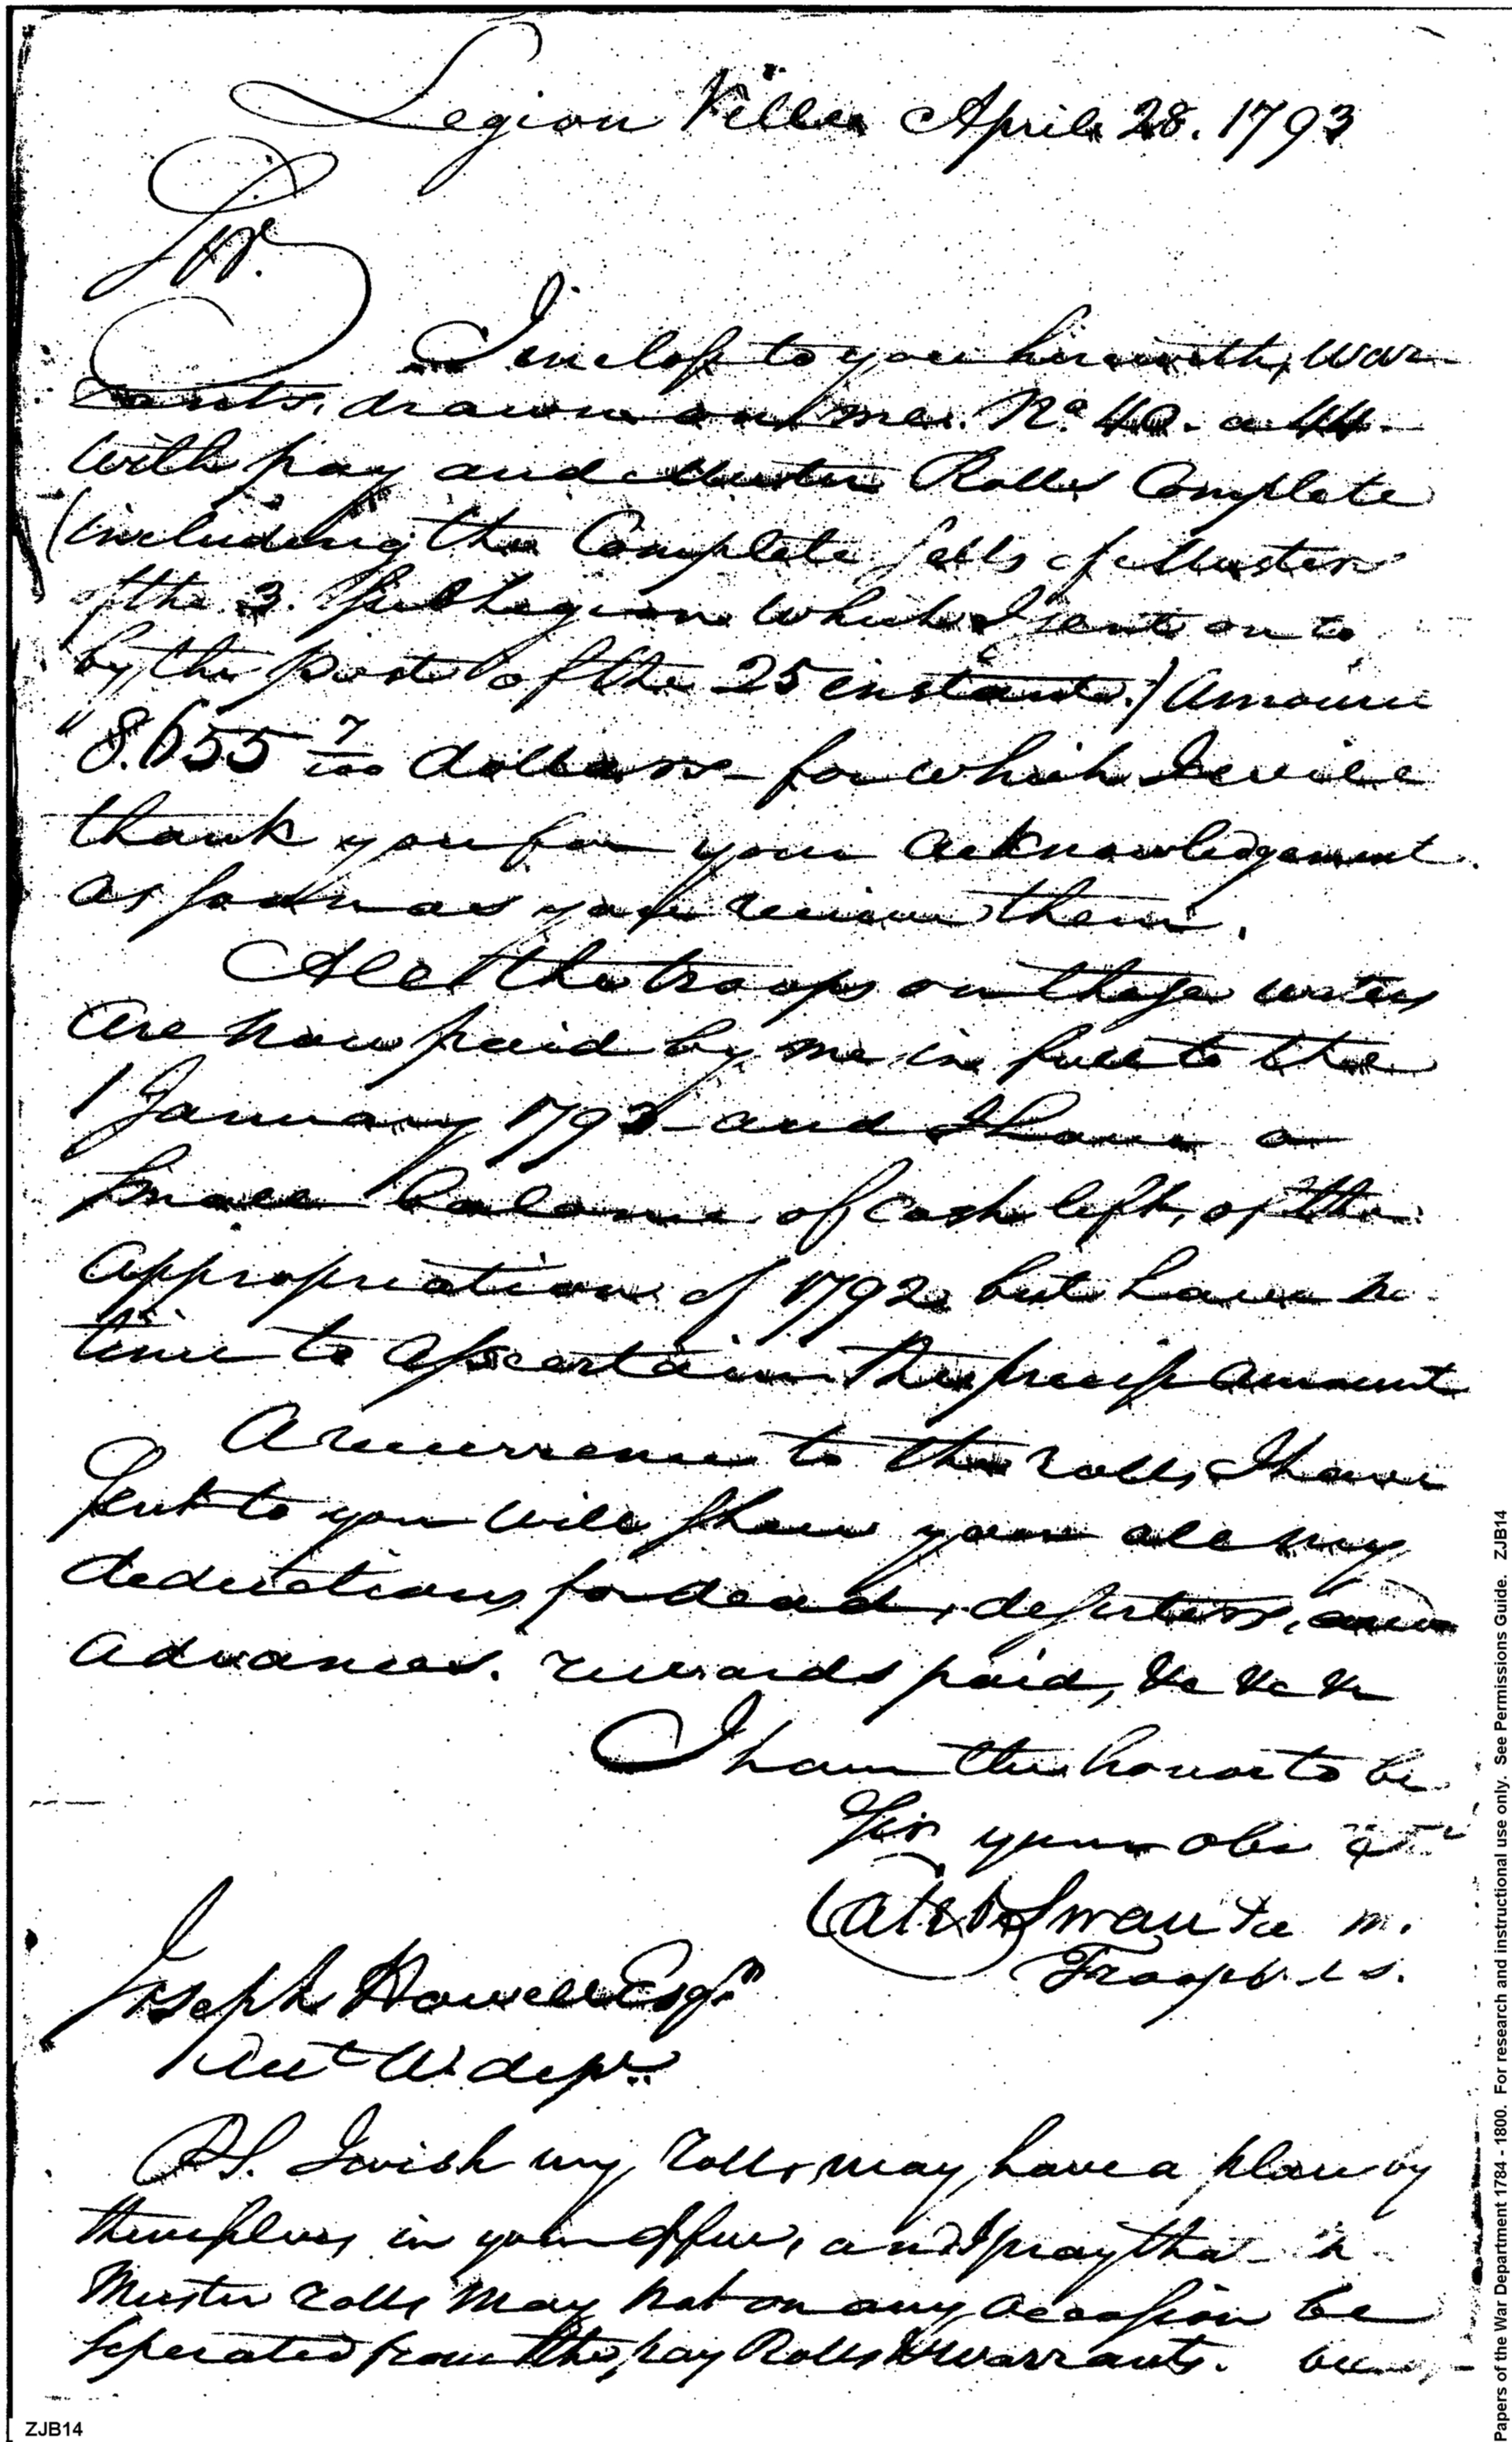 Legion Ville April 28. 1793
Sir.
I inclose to you herewith, War-
rants, drawn on me. No. 40. a 44.
with pay and Muster Rolls Complete
(including the Complete setts of Musters
of the 3. Sub Legion which I sent on to
by the post of the 25 instant.) Amount
"8.655 7/100 dollars – for which I will
thank you for your acknowledgement
as soon as you receive them.
All the troops on these waters
are now paid by me in full to the
1 January 1793 – and I have a
small balance of Cash left, of the
appropriation of 1792 but have no
time to assertain the precise amount
A recurrence to the rolls I have
sent to you will shew you all my
deductions for dead, deserters,
advances. rewards paid, &c &c &c
I have the honor to be
Sir your obe
Caleb Swan P m.
Troops U S.
Joseph Howell Esqr
Acct W. depr.
PS. I wish my rolls may have a place by
themselves in your office, and I pray tha
Muster rolls may not on any occasion be
seperated from the pay Rolls & warrants.
ZJB14
Papers of the War Department 1784 - 1800. For research and instructional use only. See Permissions Guide. ZJB14